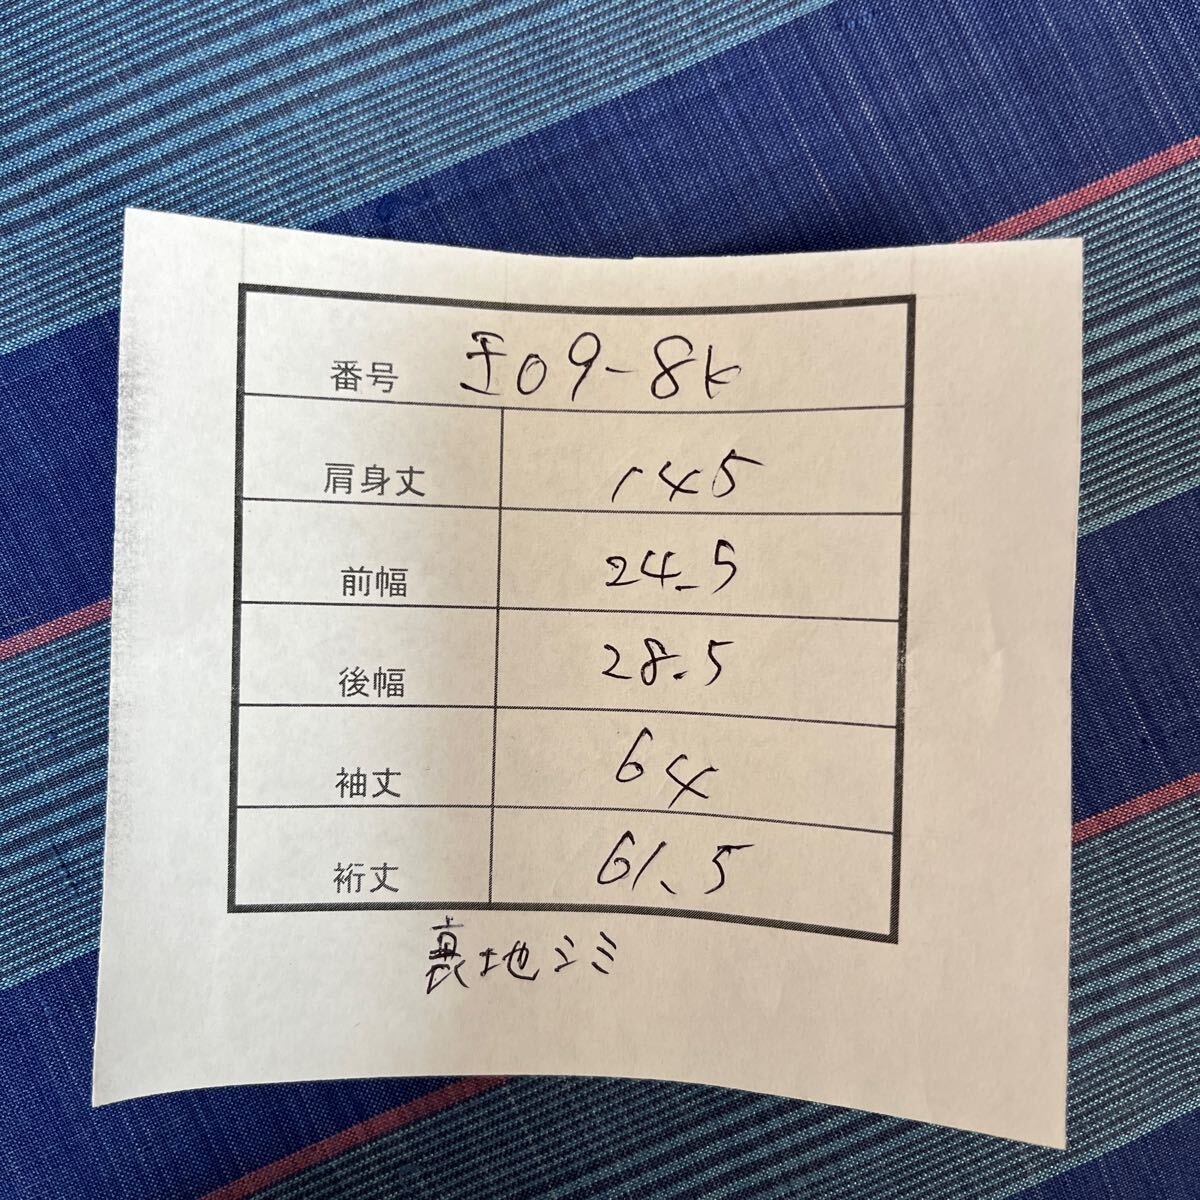 番号 王09-8k
肩身丈 145
前幅 24.5
後幅 28.5
袖丈 64
裄丈 61.5
裏地シミ